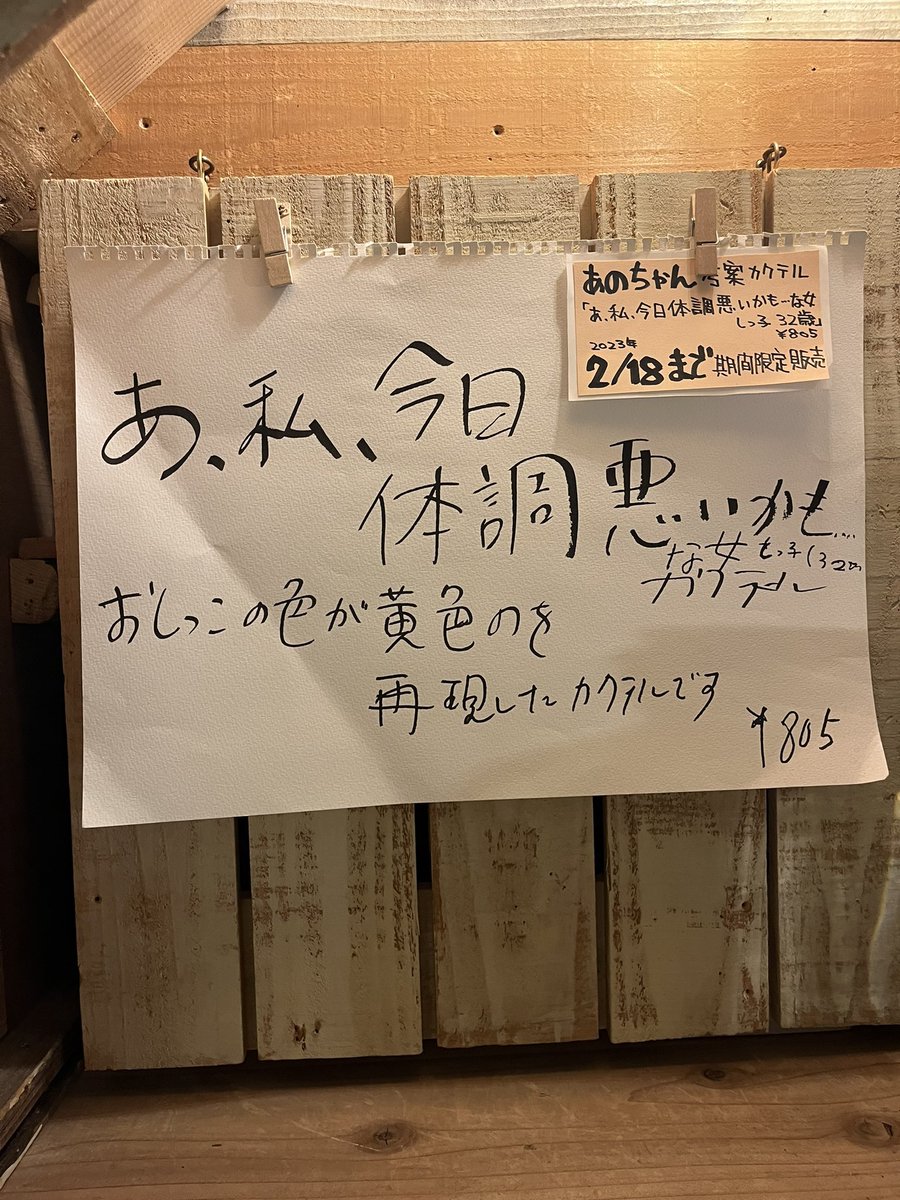 あのちゃん考案カクテル
「あ、私、今日体調悪いかも…な女
しっ子 32歳」
¥805
2023年
2/18まで期間限定販売
あ、私、今日
体調悪いかも…
な女 もっ子(32才)
カクテル
おしっこの色が黄色のを
再現したカクテルです
¥805